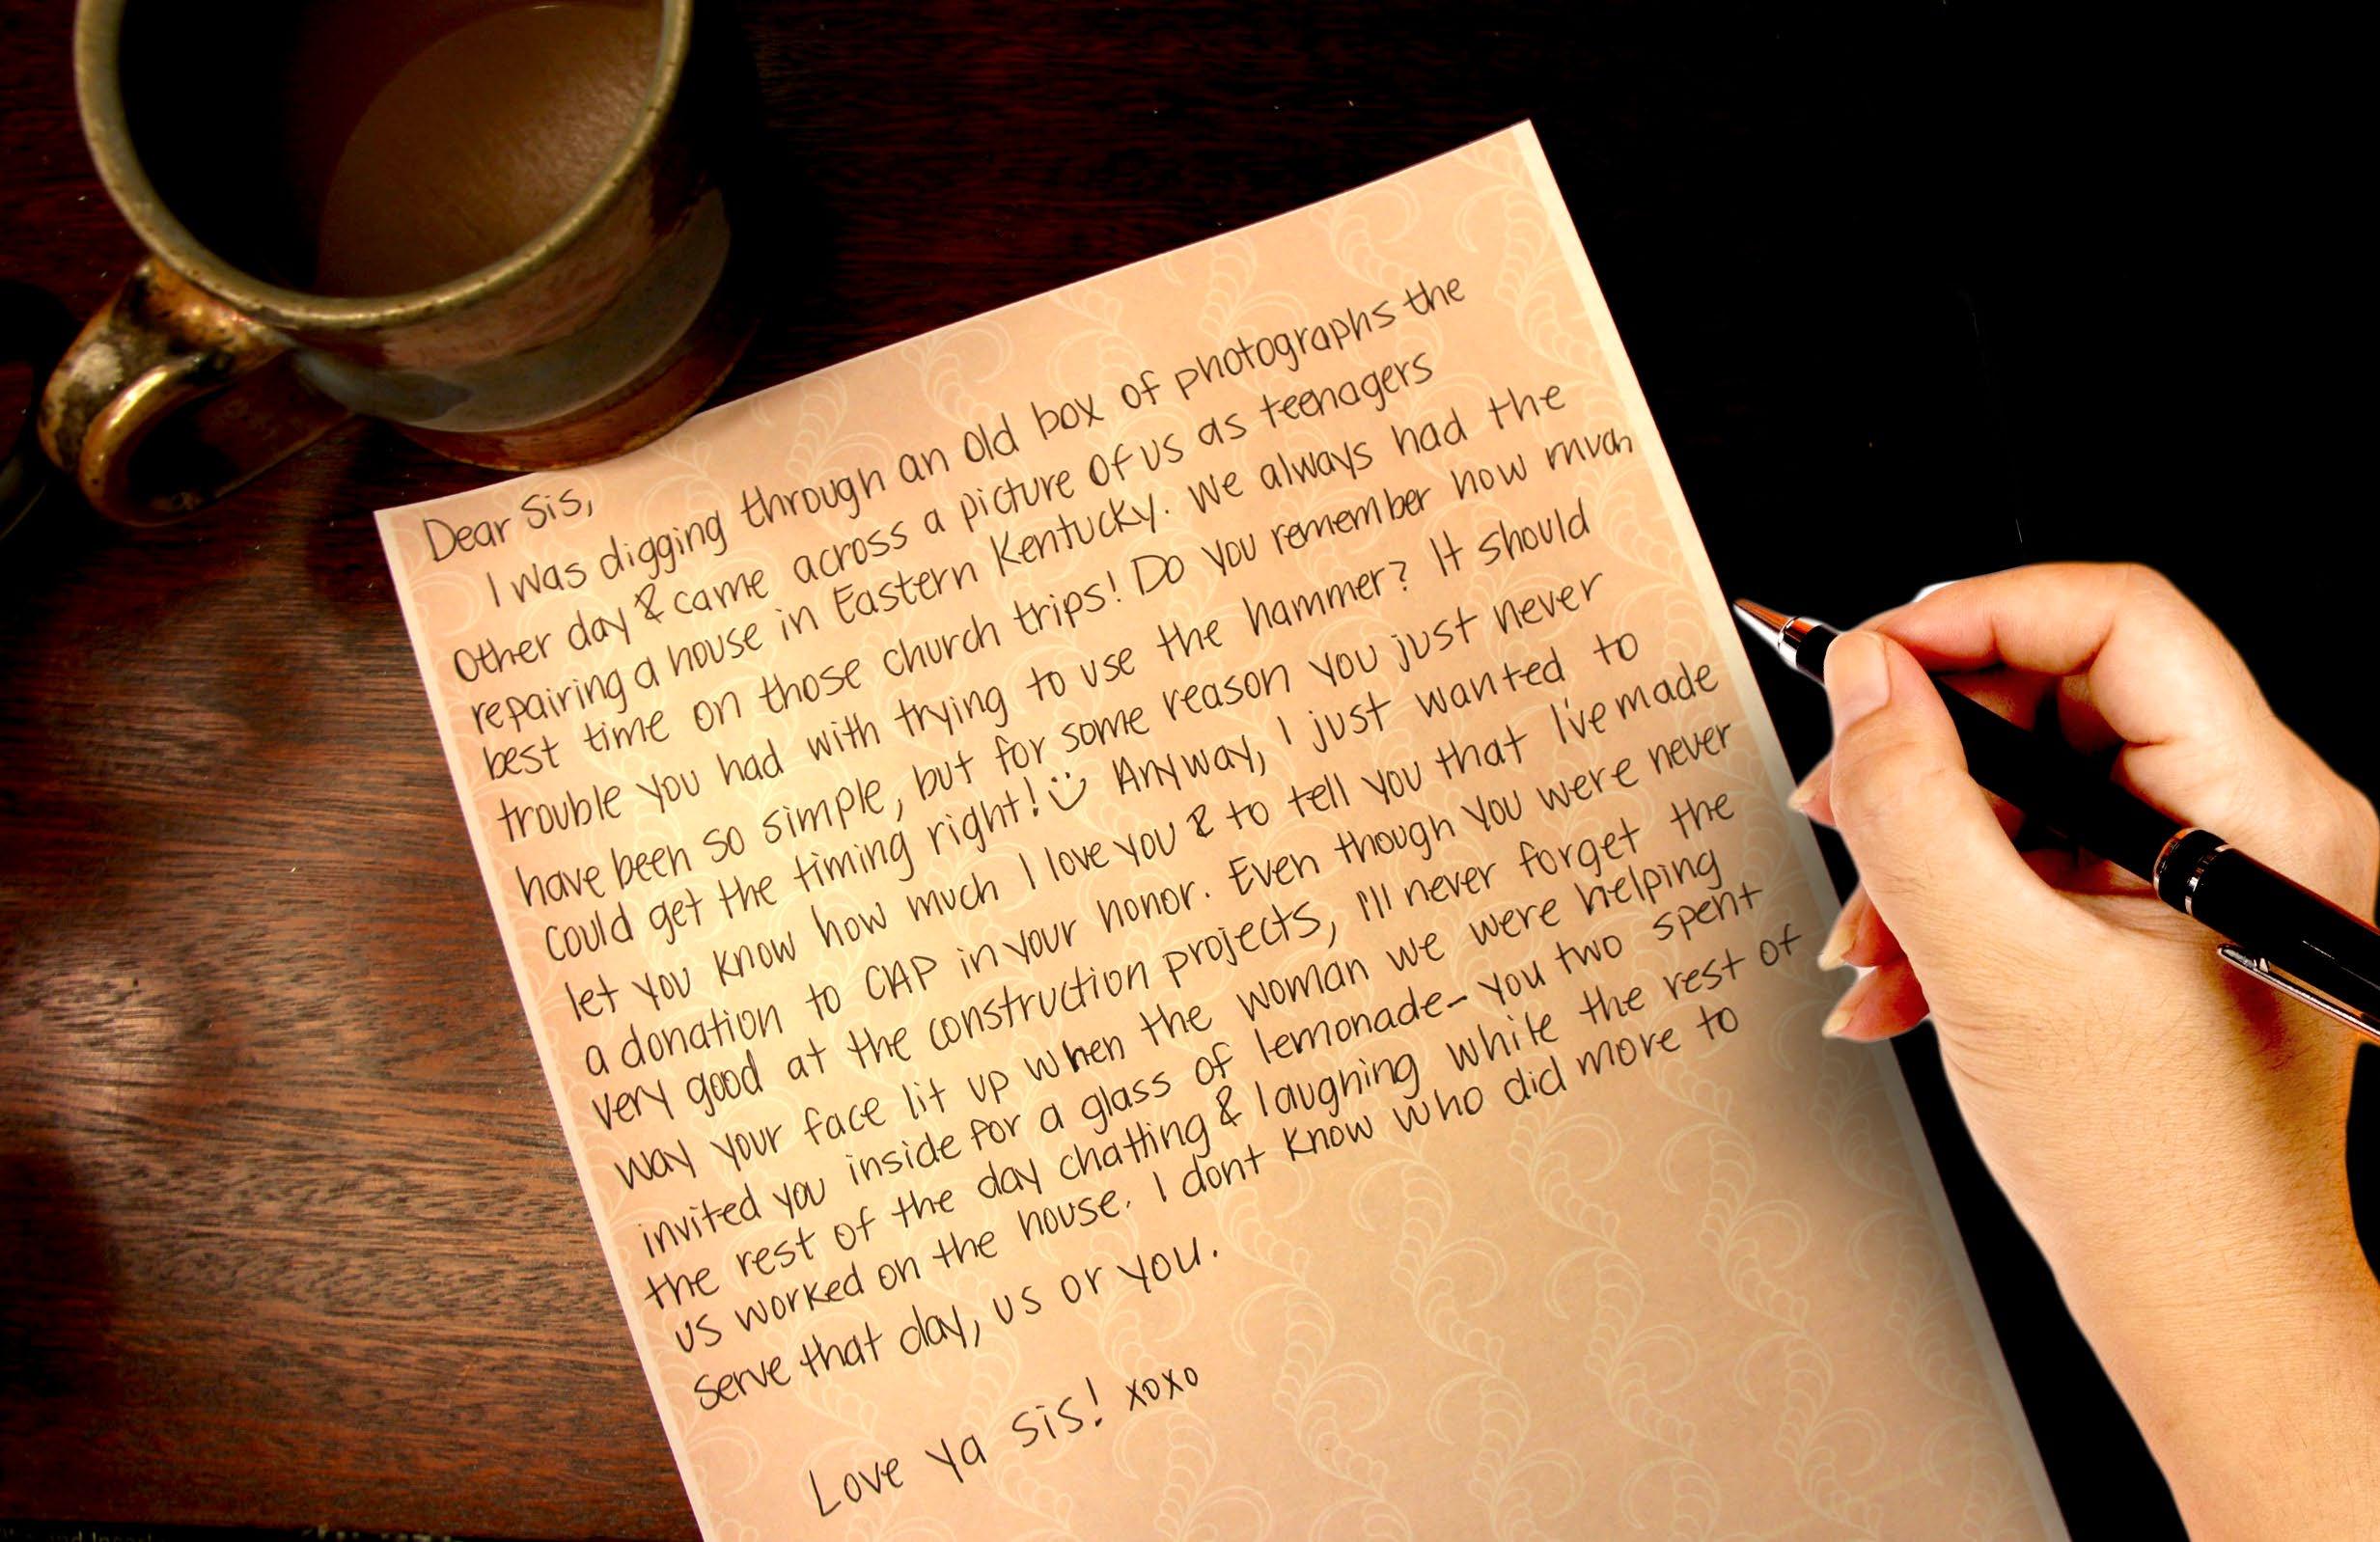 Dear Sis,
I was digging through an old box of photographs the
other day & came across a picture of us as teenagers
repairing a house in Eastern Kentucky. We always had the
best time on those church trips! Do you remember how much
trouble you had with trying to use the hammer? It should
have been so simple, but for some reason you just never
could get the timing right! :) Anyway, I just wanted to
let you know how much I love you & to tell you that I've made
a donation to CAP in your honor. Even though you were never
very good at the construction projects, I'll never forget the
way your face lit up when the woman we were helping
invited you inside for a glass of lemonade- you two spent
the rest of the day chatting & laughing while the rest of
us worked on the house. I dont know who did more to
serve that day, us or you.
Love ya sis! xoxo